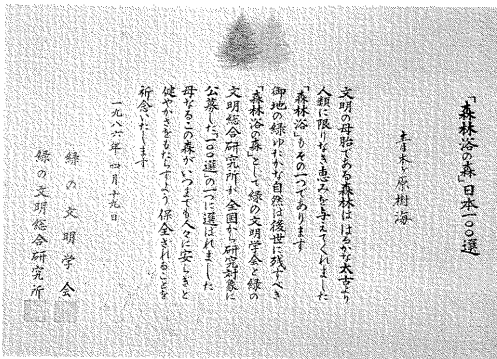 「森林浴の森」日本一〇〇選
青木ヶ原樹海
文明の母胎である森林は はるかな太古より
人類に限りなき恵みを与えてくれました
「森林浴」もその一つであります
御地の緑ゆたかな自然は後世に残すべき
「森林浴の森」として緑の文明学会と緑の
文明総合研究所が全国から研究対象に
公募した「一〇〇選」の一つに選ばれました
母なるこの森がいつまでも人々に安らぎと
健やかさをもたらすよう保全されることを
祈念いたします
一九八六年四月十九日
緑の文明学会
緑の文明総合研究所